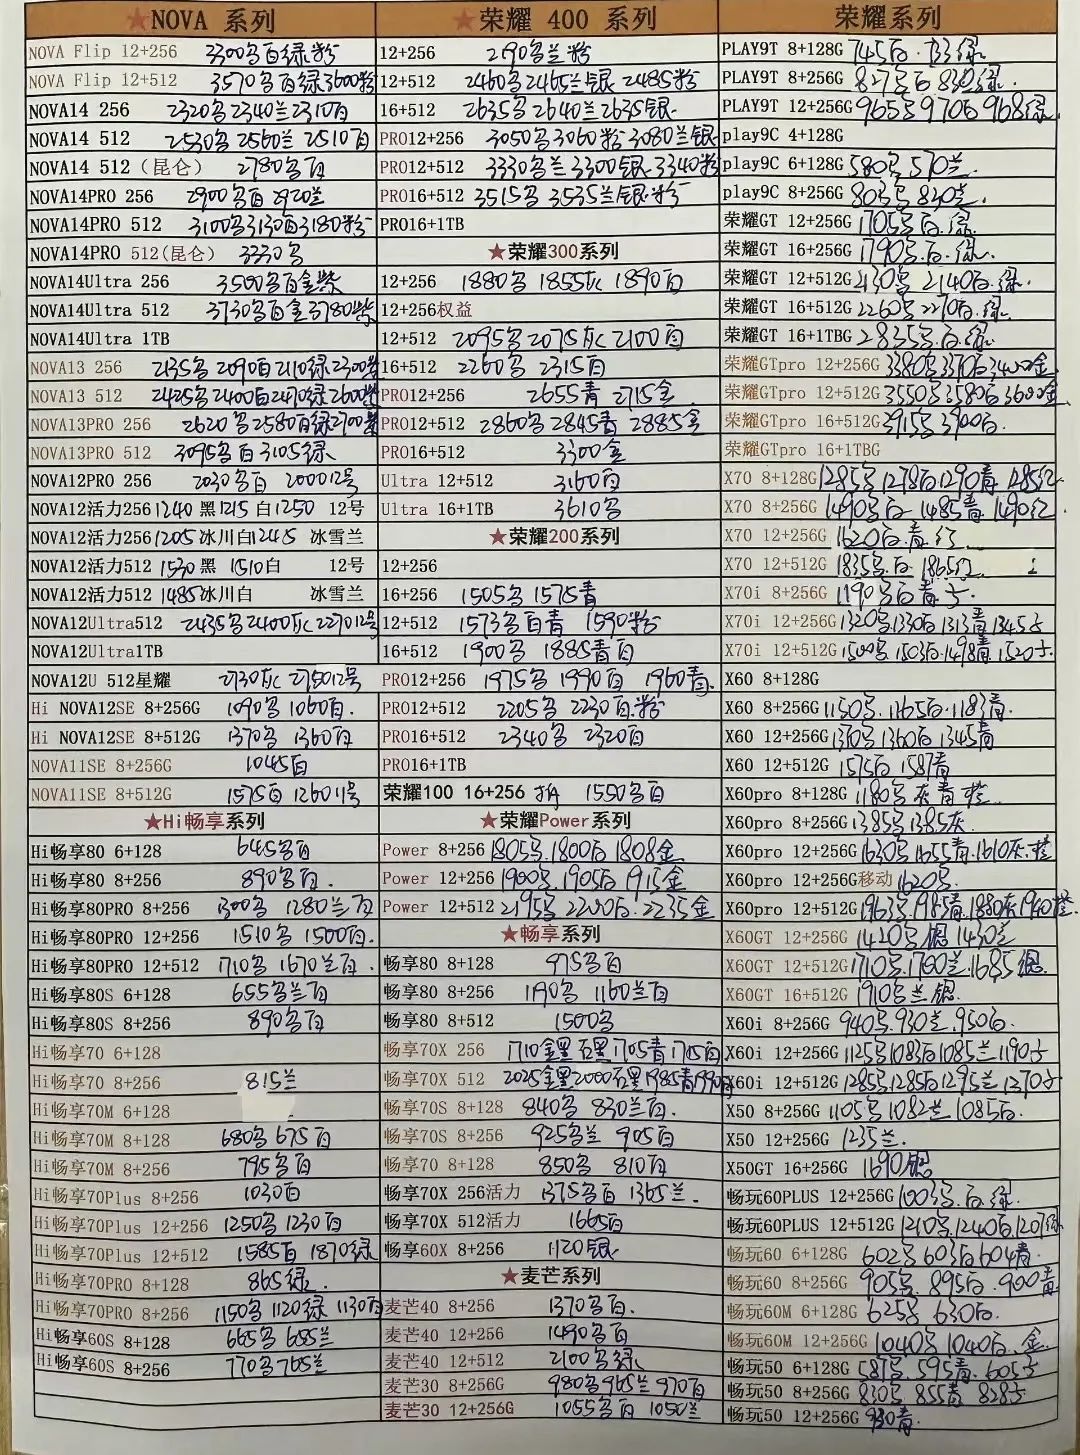 ★NOVA 系列
NOVA Flip 12+256 3300名百绿粉
NOVA Flip 12+512 3570名百绿3600粉
NOVA14 256 2320名2340兰2310百
NOVA14 512 2530名2560兰 2510百
NOVA14 512（昆仑） 2780名百
NOVA14PRO 256 2900名百 2920兰
NOVA14PRO 512 3100名3130百3180粉
NOVA14PRO 512(昆仑) 3330名
NOVA14Ultra 256 3500名百金紫
NOVA14Ultra 512 3730名百金3780紫
NOVA14Ultra 1TB
NOVA13 256 2135名 2090百2110绿2300紫
NOVA13 512 2425名2400百2470绿2600紫
NOVA13PRO 256 2620名2580百绿2700紫
NOVA13PRO 512 3095名百3105绿
NOVA12PRO 256 2030名百 200012号
NOVA12活力256 1240 黑1215 白1250 12号
NOVA12活力256 1205 冰川白1245 冰雪兰
NOVA12活力512 1530 黑 1510白 12号
NOVA12活力512 1485冰川白 冰雪兰
NOVA12Ultra512 2435名2400灰227012号
NOVA12Ultra1TB
NOVA12U 512星耀 2730灰 275012号
Hi NOVA12SE 8+256G 1090名 1060百.
Hi NOVA12SE 8+512G 1370名 1360百
NOVA11SE 8+256G 1045百
NOVA11SE 8+512G 1575百 126011号
★Hi畅享系列
Hi畅享80 6+128 645名百
Hi畅享80 8+256 890名百.
Hi畅享80PRO 8+256 1300名 1280兰百
Hi畅享80PRO 12+256 1510名 1500百.
Hi畅享80PRO 12+512 1710名 1670兰百.
Hi畅享80S 6+128 655名兰百
Hi畅享80S 8+256 890名百
Hi畅享70 6+128
Hi畅享70 8+256 815兰
Hi畅享70M 6+128
Hi畅享70M 8+128 680名 675百
Hi畅享70M 8+256 795名百
Hi畅享70Plus 8+256 1030百
Hi畅享70Plus 12+256 1250名 1230百
Hi畅享70Plus 12+512 1585百 1870绿
Hi畅享70PRO 8+128 865绿
Hi畅享70PRO 8+256 1150名 1120绿 1130百
Hi畅享60S 8+128 665名 655兰
Hi畅享60S 8+256 770名765兰
★荣耀 400 系列
12+256 2190名兰粉
12+512 2460名2465兰银 2485粉
16+512 2635名 2640兰2635银
PRO12+256 3050名3060粉3080兰银
PRO12+512 3330名兰 3300银.3340粉
PRO16+512 3515名 3535兰银粉
PRO16+1TB
★荣耀300系列
12+256 1880名 1855灰 1890百
12+256权益
12+512 2095名2075灰 2100百
16+512 2260名 2315百
PRO12+256 2655青 2715金
PRO12+512 2860名 2845青 2885金
PRO16+512 3300金
Ultra 12+512 3160百
Ultra 16+1TB 3610名
★荣耀200系列
12+256
16+256 1505名 1575青
12+512 1573名百青 1590粉
16+512 1900名 1885青百
PRO12+256 1975名 1990百 1960青.
PRO12+512 2205名 2230百.粉
PRO16+512 2340名 2320百
PRO16+1TB
荣耀100 16+256 1550名百
★荣耀Power系列
Power 8+256 1805名.1800百 1808金
Power 12+256 1900名.1905百 1915金
Power 12+512 2195名 2200百.2235金
★畅享系列
畅享80 8+128 975名百
畅享80 8+256 1190名 1160兰百
畅享80 8+512 1500名
畅享70X 256 1710金黑 百黑1705青1705百
畅享70X 512 2025金黑2000百黑1985青1990百
畅享70S 8+128 840名 830兰百.
畅享70S 8+256 925名兰 905百
畅享70 8+128 850名 810百
畅享70X 256活力 1375名百 1365兰.
畅享70X 512活力 1665百
畅享60X 8+256 1120银
★麦芒系列
麦芒40 8+256 1370名百.
麦芒40 12+256 1490名百
麦芒40 12+512 2100名绿
麦芒30 8+256G 980名965兰 970百
麦芒30 12+256G 1055名百 1050兰
荣耀系列
PLAY9T 8+128G 745百.733绿
PLAY9T 8+256G 827名百 830绿.
PLAY9T 12+256G 965名970百 968绿
play9C 4+128G
play9C 6+128G 580名 570兰
play9C 8+256G 803名 830兰.
荣耀GT 12+256G 1705名百.绿
荣耀GT 16+256G 1790名.百.绿.
荣耀GT 12+512G 2130名 2140百.绿.
荣耀GT 16+512G 2260名 2270百.绿
荣耀GT 16+1TBG 2835名.百.绿
荣耀GTpro 12+256G 3380名3370百3400金
荣耀GTpro 12+512G 3550名3580百3600金
荣耀GTpro 16+512G 3915名3900百.
荣耀GTpro 16+1TBG
X70 8+128G 1285名1278百1290青 1285红
X70 8+256G 1490名百.1485青 1490红
X70 12+256G 1620百.青.红
X70 12+512G 1835名.百.1865红
X70i 8+256G 1190名百青子.
X70i 12+256G 1320名1330百1313青1345子
X70i 12+512G 1500名.1503百.1498青.1520子.
X60 8+128G
X60 8+256G 1150名.1165百.1183青.
X60 12+256G 1370名1360百1345青
X60 12+512G 1575百 1587青
X60pro 8+128G 1180名灰青橙
X60pro 8+256G 1385名1385灰
X60pro 12+256G 1630名1655青.1610灰.橙
X60pro 12+256G移动 1620名.
X60pro 12+512G 1963名.1985青.1880灰1940橙
X60GT 12+256G 1420名银1430兰
X60GT 12+512G 1710名.1700兰.1685银.
X60GT 16+512G 1910名兰银.
X60i 8+256G 940名.930兰.950百.
X60i 12+256G 1125名1083百1085兰1190子
X60i 12+512G 1285名1285百1295兰1370子
X50 8+256G 1105名1082兰1085百.
X50 12+256G 1235兰.
X50GT 16+256G 1690银
畅玩60PLUS 12+256G 1003名.百.绿.
畅玩60PLUS 12+512G 1210名.1240百1207绿
畅玩60 6+128G 602名 603百604青.
畅玩60 8+256G 905名.895百.900青
畅玩60M 6+128G 625名 630百.
畅玩60M 12+256G 1040名1040百.金
畅玩50 6+128G 587名.595青.605子
畅玩50 8+256G 830名.855青 828子
畅玩50 12+256G 930青.